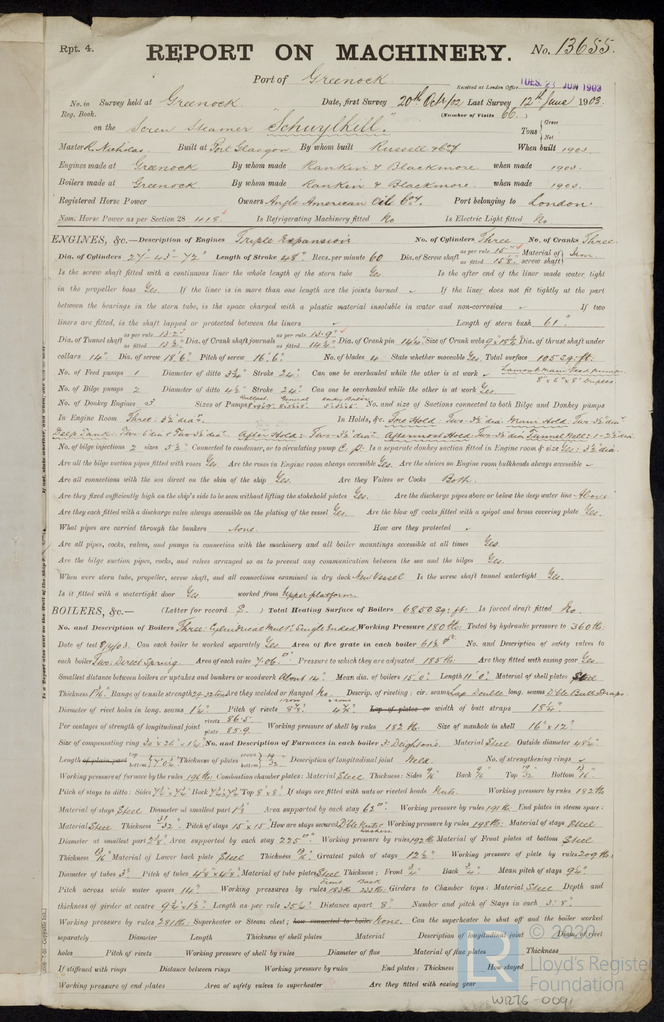 Rpt. 4.
REPORT ON MACHINERY.
No. 13655.
Port of Greenock
Received at London Office TUES. JUN 1903
No. in Survey held at Greenock Date, first Survey 20th Octr/02 Last Survey 12th June 1903.
Reg. Book. (Number of Visits 66.)
on the Screw Steamer "Schuylkill." Tons Gross Net
Master R. Nicholas. Built at Port Glasgow By whom built Russell & Coy When built 1903
Engines made at Greenock By whom made Rankin & Blackmore when made 1903.
Boilers made at Greenock By whom made Rankin & Blackmore when made 1903.
Registered Horse Power Owners Anglo American Oil Coy. Port belonging to London
Nom. Horse Power as per Section 28 418 Is Refrigerating Machinery fitted No Is Electric Light fitted No
ENGINES, &c.—Description of Engines Triple Expansion No. of Cylinders Three No. of Cranks Three.
Dia. of Cylinders 27"-45"-72" Length of Stroke 48" Revs. per minute 60 Dia. of Screw shaft as per rule as fitted Material of screw shaft Iron
Is the screw shaft fitted with a continuous liner the whole length of the stern tube Yes. Is the after end of the liner made water tight
in the propeller boss Yes. If the liner is in more than one length are the joints burned If the liner does not fit tightly at the part
between the bearings in the stern tube, is the space charged with a plastic material insoluble in water and non-corrosive If two
liners are fitted, is the shaft lapped or protected between the liners Length of stern bush 61"
Dia. of Tunnel shaft as per rule 13.2" as fitted Dia. of Crank shaft journals as per rule as fitted Dia. of Crank pin Size of Crank webs Dia. of thrust shaft under
collars 14" Dia. of screw 18'.6" Pitch of screw 16'.6" No. of blades 4 State whether moveable Yes. Total surface 105 sq: ft.
No. of Feed pumps 1 Diameter of ditto Stroke 24" Can one be overhauled while the other is at work
8" x 6" x 8" Duplex
No. of Bilge pumps 2 Diameter of ditto 4½" Stroke 24" Can one be overhauled while the other is at work Yes
No. of Donkey Engines 3 Sizes of Pumps No. and size of Suctions connected to both Bilge and Donkey pumps
In Engine Room Three: 3½" diar. In Holds, &c. Fore Hold: Two: 3½" diar. Main Hold: Two 3½" diar.
Deep Tank: Two 6" diar & Two 3½" diar. After Hold: Two 3½" diar. Aftermost Hold: Two 3½" diar Tunnel Well: 1 - 2½" dia.
No. of bilge injections 2 sizes 5½" Connected to condenser, or to circulating pump C. P. Is a separate donkey suction fitted in Engine room & size Yes: 3½" dia.
Are all the bilge suction pipes fitted with roses Yes. Are the roses in Engine room always accessible Yes. Are the sluices on Engine room bulkheads always accessible
Are all connections with the sea direct on the skin of the ship Yes. Are they Valves or Cocks Both.
Are they fixed sufficiently high on the ship's side to be seen without lifting the stokehold plates Yes. Are the discharge pipes above or below the deep water line Above
Are they each fitted with a discharge valve always accessible on the plating of the vessel Yes. Are the blow off cocks fitted with a spigot and brass covering plate Yes.
What pipes are carried through the bunkers None. How are they protected
Are all pipes, cocks, valves, and pumps in connection with the machinery and all boiler mountings accessible at all times Yes.
Are the bilge suction pipes, cocks, and valves arranged so as to prevent any communication between the sea and the bilges Yes.
When were stern tube, propeller, screw shaft, and all connections examined in dry dock New Vessel Is the screw shaft tunnel watertight Yes.
Is it fitted with a watertight door Yes worked from Upper platform.
BOILERS, &c.— (Letter for record S.) Total Heating Surface of Boilers 6850 sq: ft. Is forced draft fitted No.
No. and Description of Boilers Three: Cylindrical Mult: Single Ended Working Pressure 180 lbs. Tested by hydraulic pressure to 360 lbs.
Date of test Can each boiler be worked separately Yes Area of fire grate in each boiler No. and Description of safety valves to
each boiler Two: Direct Spring. Area of each valve 7.06 Pressure to which they are adjusted 185 lbs. Are they fitted with easing gear Yes
Smallest distance between boilers or uptakes and bunkers or woodwork About 14" Mean dia. of boilers 15'.0" Length 11'.0" Material of shell plates Steel
Thickness Range of tensile strength Are they welded or flanged No. Descrip. of riveting: cir. seams Lap Double long. seams Dble Butt Straps
Diameter of rivet holes in long. seams Pitch of rivets Lap of plates or width of butt straps 18¾"
Per centages of strength of longitudinal joint rivets 86.5. plate 85.9. Working pressure of shell by rules 182 lb Size of manhole in shell 16" x 12"
Size of compensating ring No. and Description of Furnaces in each boiler 3: Deighton's. Material Steel Outside diameter
Length of plain part top bottom Thickness of plates crown bottom Description of longitudinal joint Weld. No. of strengthening rings
Working pressure of furnace by the rules 196 lb. Combustion chamber plates: Material Steel Thickness: Sides Back Top Bottom
Pitch of stays to ditto: Sides Back Top 8" x 8" If stays are fitted with nuts or riveted heads Nuts. Working pressure by rules 182 lb
Material of stays Steel Diameter at smallest part Area supported by each stay 62" Working pressure by rules 191 lb End plates in steam space:
Material Steel Thickness Pitch of stays 15" x 15" How are stays secured Dble Nuts & Washers Working pressure by rules 198 lb. Material of stays Steel
Diameter at smallest part Area supported by each stay 225" Working pressure by rules 192 lb Material of Front plates at bottom Steel
Thickness Material of Lower back plate Steel Thickness Greatest pitch of stays Working pressure of plate by rules 209 lb.
Diameter of tubes 3" Pitch of tubes Material of tube plates Steel Thickness: Front Back Mean pitch of stays
Pitch across wide water spaces 14" Working pressures by rules Front Back Girders to Chamber tops: Material Steel Depth and
thickness of girder at centre Length as per rule Distance apart 8" Number and pitch of Stays in each 3: 8"
Working pressure by rules 281 lb. Superheater or Steam chest; how connected to boiler None. Can the superheater be shut off and the boiler worked
separately Diameter Length Thickness of shell plates Material Description of longitudinal joint Diam. of rivet
holes Pitch of rivets Working pressure of shell by rules Diameter of flue Material of flue plates Thickness
If stiffened with rings Distance between rings Working pressure by rules End plates: Thickness How stayed
Working pressure of end plates Area of safety valves to superheater Are they fitted with easing gear
© 2020
Lloyd's Register
Foundation
WR76-0091